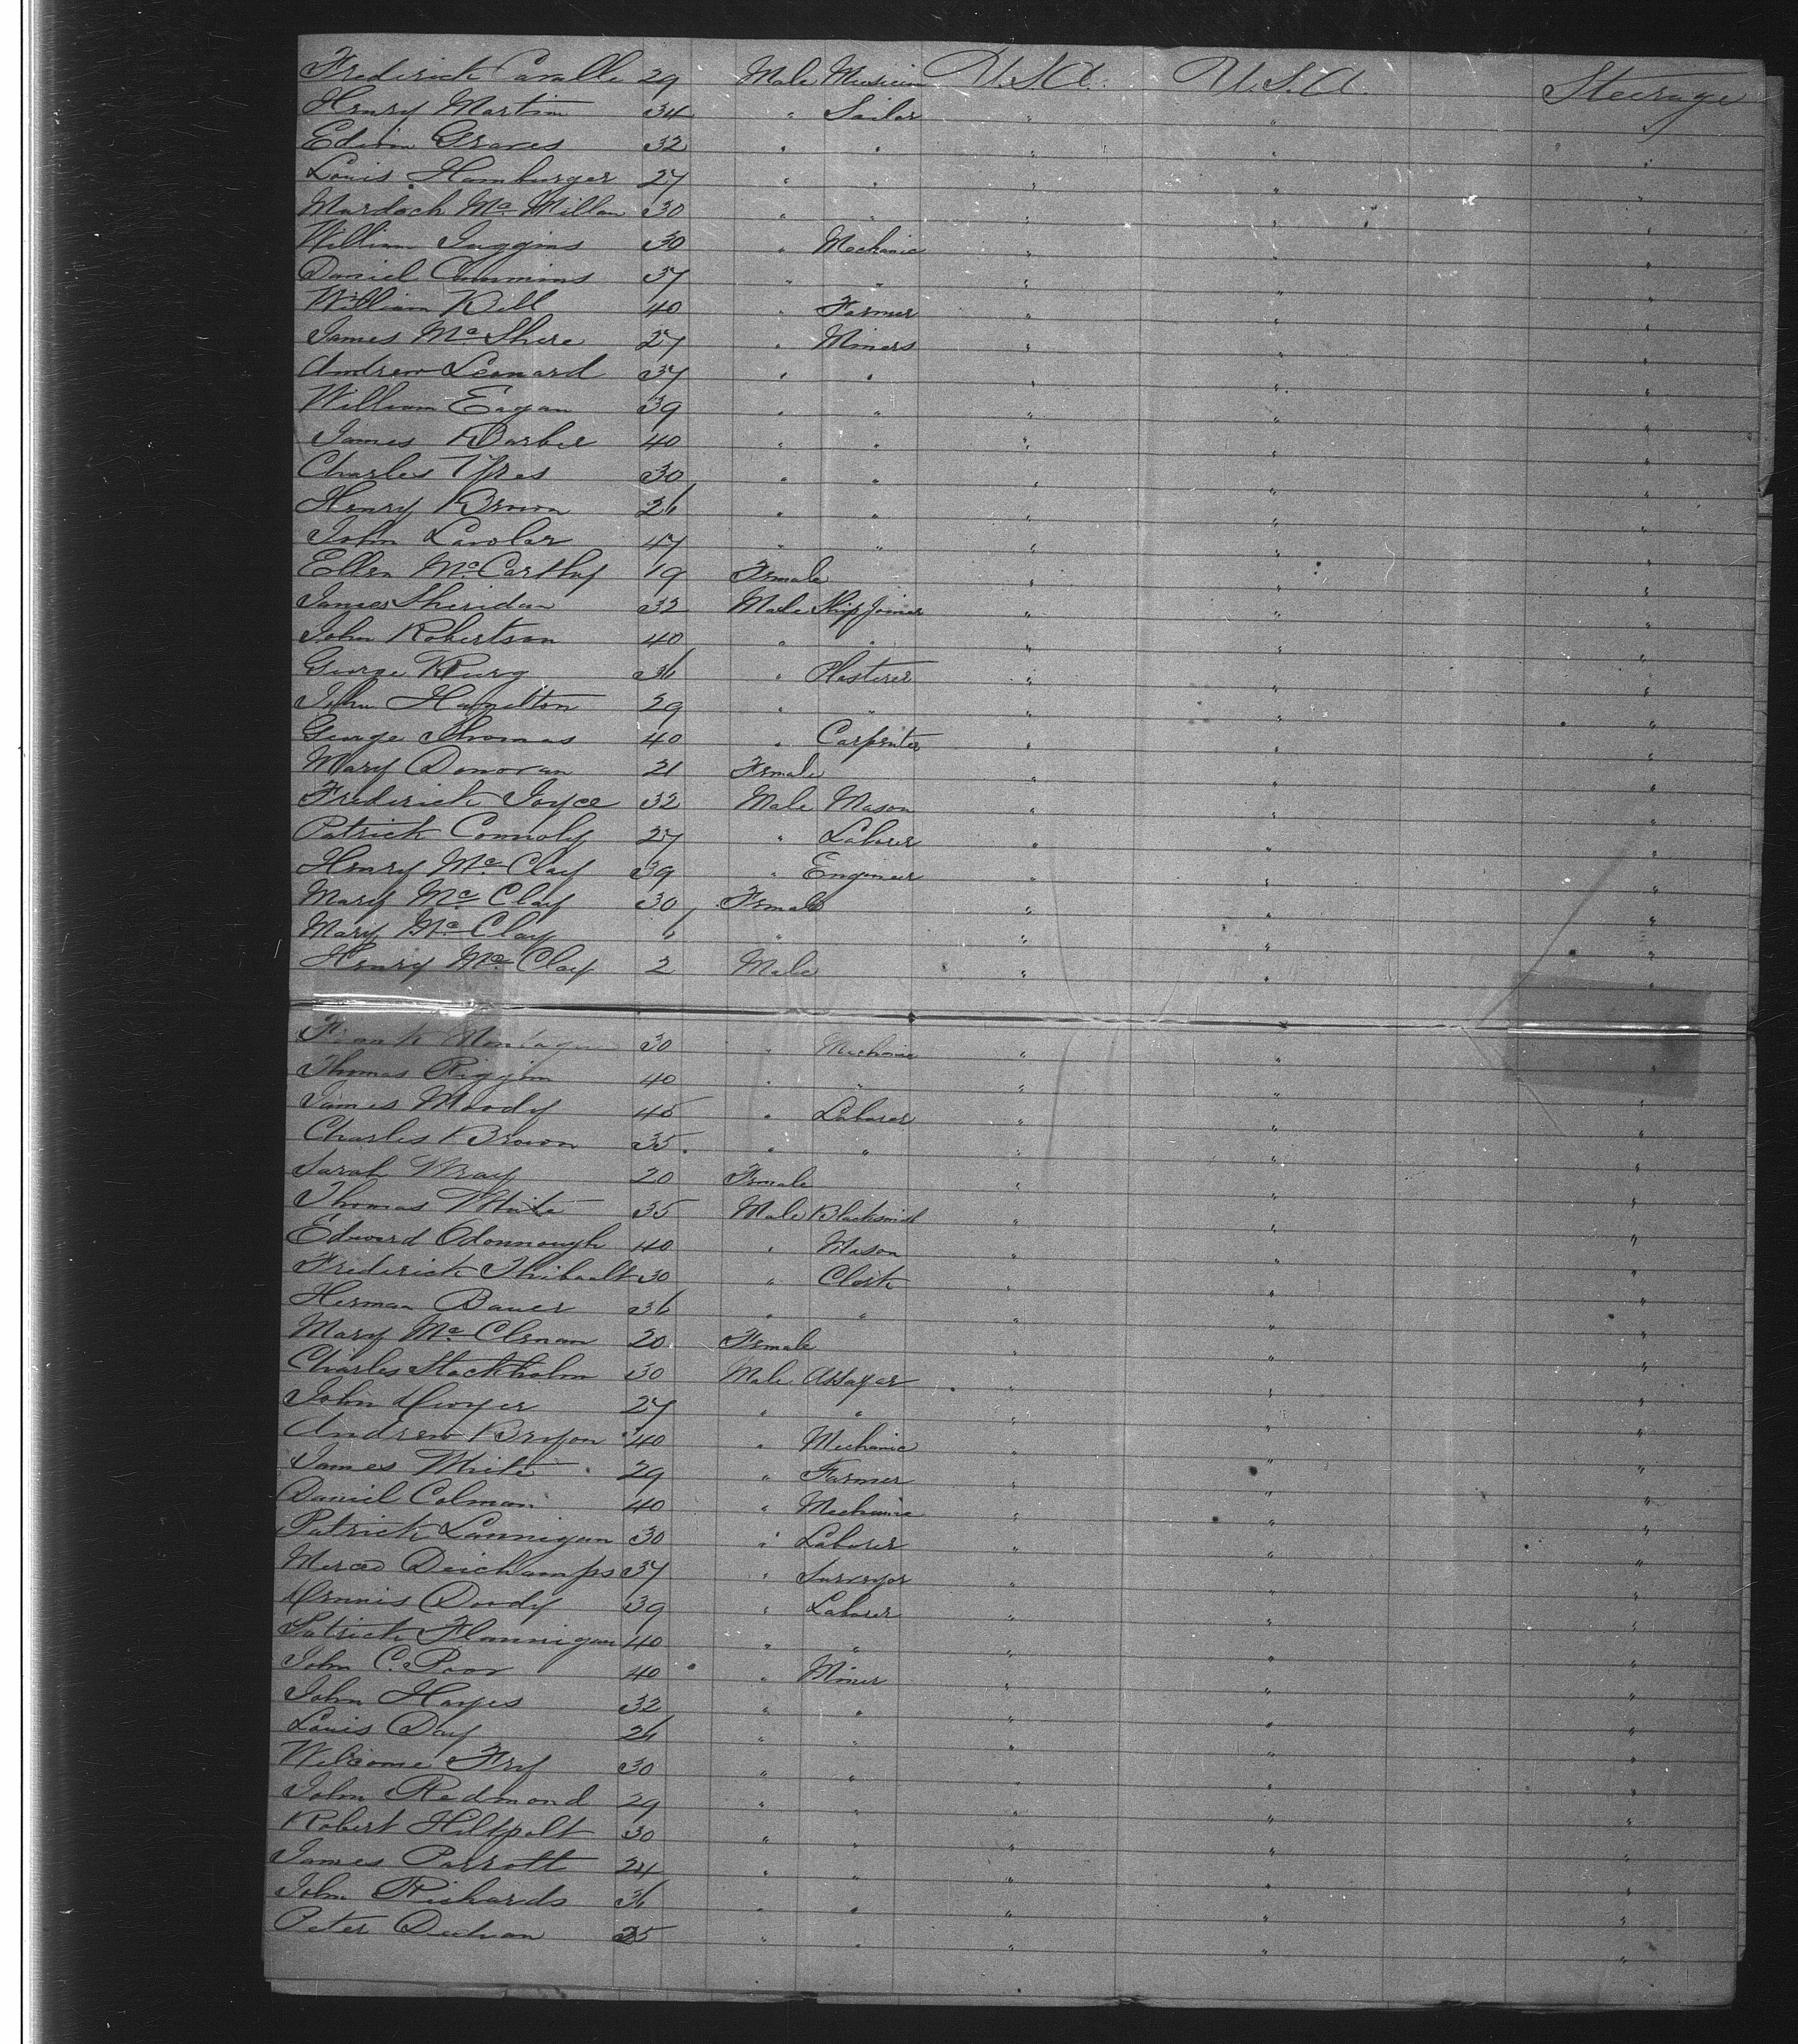 Frederick Cavalle 29 Male Musician U.S.A. U.S.A. Steerage
Henry Martin 34 " Sailor " " "
Edwin Graves 32 " " " " "
Louis Hamburger 27 " " " " "
Murdoch McMillan 30 " " " " "
William Juggins 30 " Mechanic " " "
Daniel Cummins 37 " " " " "
William Bell 40 " Farmer " " "
James McShere 27 " Miners " " "
Andrew Leonard 37 " " " " "
William Eagan 39 " " " " "
James Barber 40 " " " " "
Charles 30 " " " " "
Henry Brown 26 " " " " "
John Lawler 47 " " " " "
Ellen McCarthy 19 Female " " "
James Sheridan 32 Male Ship Joiner " " "
John Robertson 40 " " " " "
George Burg 36 " Plasterer " " "
John Hamilton 29 " " " " "
George Thomas 40 " Carpenter " " "
Mary Donovan 21 Female " " "
Frederick Joyce 32 Male Mason " " "
Patrick Connoly 27 " Laborer " " "
Henry McClay 39 " Engineer " " "
Mary McClay 30 Female " " "
Mary McClay 6 " " " "
Henry McClay 2 Male " " "
Frank Montague 30 " Mechanic " " "
Thomas Riggin 40 " " " " "
James Moody 45 " Laborer " " "
Charles Brown 35 " " " " "
Sarah Wray 20 Female " " "
Thomas White 35 Male Blacksmith " " "
Edward Odonnough 40 " Mason " " "
Frederick Thibault 30 " Clerk " " "
Herman Bauer 36 " " " " "
Mary McClenan 20 Female " " "
Charles Stockholm 30 Male Assayer " " "
John Dwyer 27 " " " " "
Andrew Bryon 40 " Mechanic " " "
James White 29 " Farmer " " "
Daniel Colman 40 " Mechanic " " "
Patrick Lannigan 30 " Laborer " " "
Merced Deichamps 37 " Surveyor " " "
Dennis Doody 39 " Laborer " " "
Patrick Flannigan 40 " " " " "
John C. Poor 40 " Miner " " "
John Hayes 32 " " " " "
Louis Day 26 " " " " "
Welcome Fry 30 " " " " "
John Redmond 29 " " " " "
Robert Hiltpolt 30 " " " " "
James Parrott 24 " " " " "
John Richards 36 " " " " "
Peter Deehan 35 " " " " "